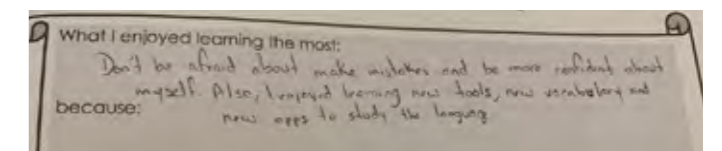 What I enjoyed learning the most:
Don't be afraid about make mistakes and be more confident about
myself. Also, I enjoyed learning new tools, new vocabulary and
because:
new apps to study the languag